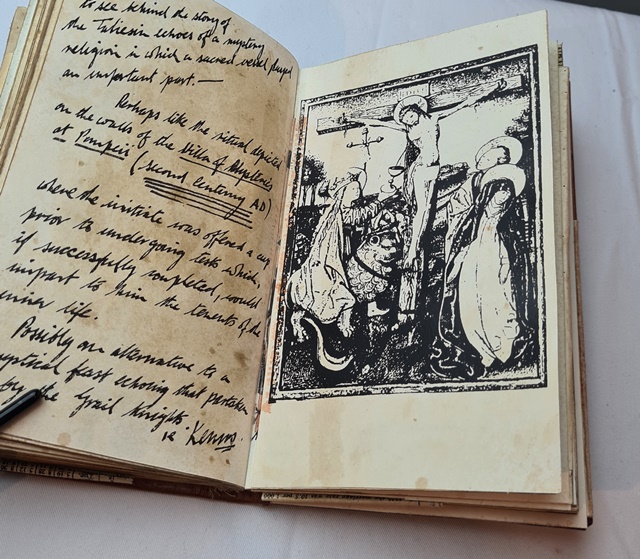 to see behind the story of
the Taliesin echoes of a mystery
religion in which a sacred vessel played
an important part. —
Perhaps like the ritual depicted
on the walls of the Villa of Mysteries
at Pompeii
(second century AD)
where the initiate was offered a cup
prior to undergoing tests which,
if successfully completed, would
impart to him the tenents of the
inner life.
Possibly an alternative to a
feast echoing that partaken
by the Grail Knights
ie